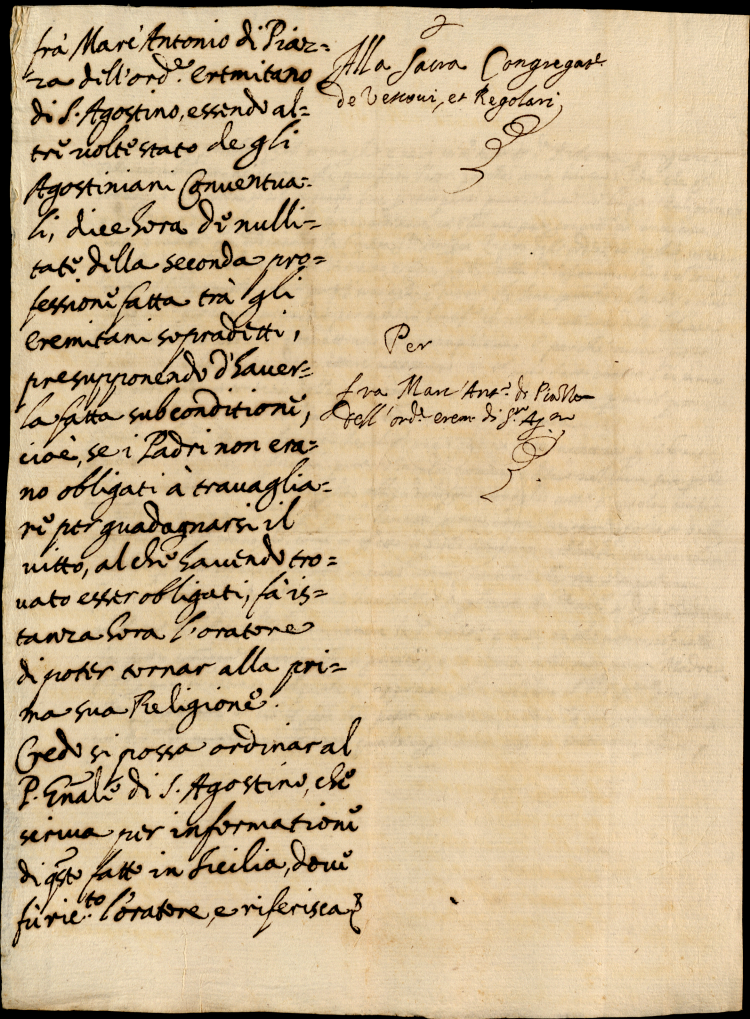 frà Marc'Antonio di Piaz=
za dell'ord.e Eremitano
di S. Agostino, essendo al=
tre volte stato de gli
Agostiniani Conventua=
li, dice hora di nulli=
tate della seconda pro=
fessione fatta trà gli
Eremitani sopradetti,
presupponendo d'haver=
la fatta sub conditione,
cioè, se i Padri non era=
no obligati à travaglia=
re per guadagnarsi il
vitto, al che havendo tro=
vato esser obligati, fà is=
tanza hora l'oratore
di poter tornar alla pri=
ma sua Religione.
Credo si possa ordinar al
P. Gnāle di S. Agostino, che
scriva per informatione
di qsto fatto in Sicilia, dove
fù ric.to l'oratore, e riferisca
Alla Sacra Congregat.e
de Vescovi, et Regolari
Per
fra Marc'Ant.o di Piazza
dell'ord.e erem. di S.to